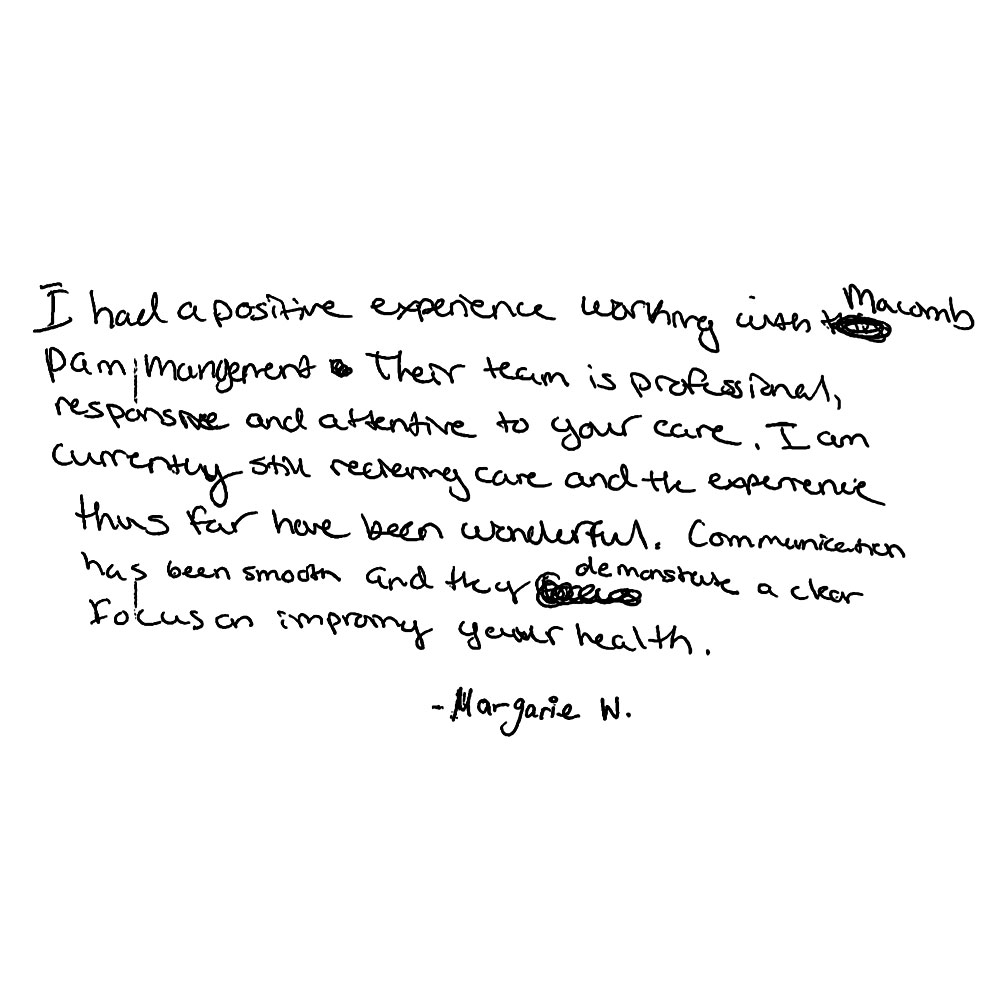 I had a positive experience working with Macomb
pain management. Their team is professional,
responsive and attentive to your care. I am
currently still recieving care and the experience
thus far have been wonderful. Communication
has been smooth and they demonstrate a clear
focus on improving your health.
-Margarie W.